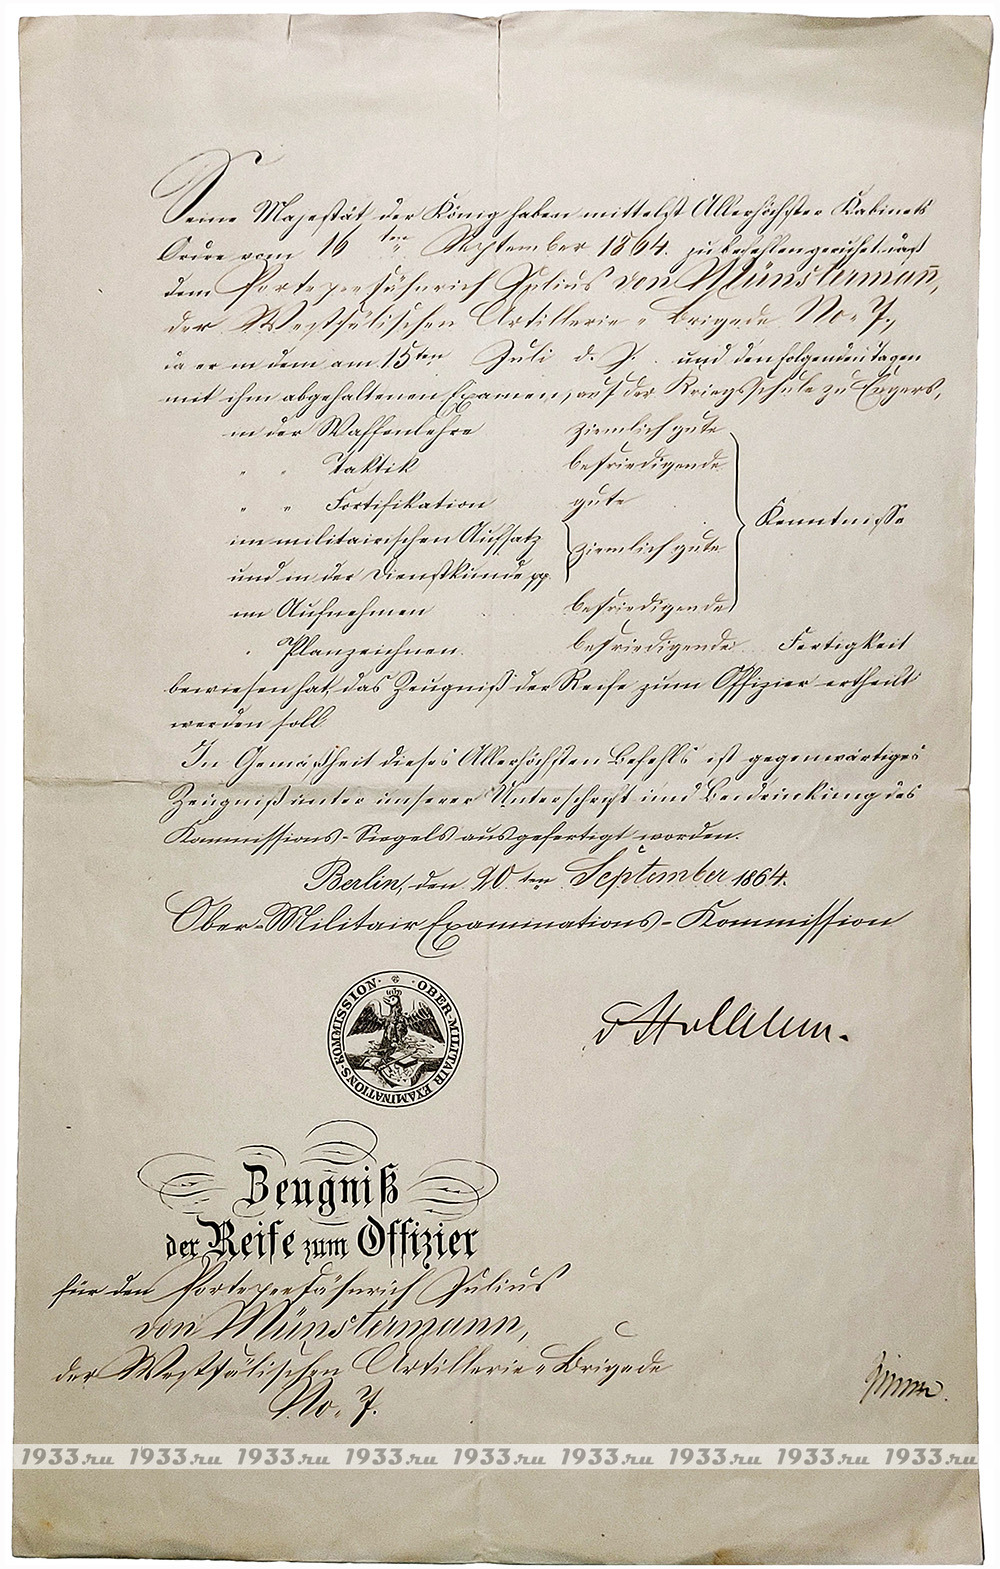 Seine Majestät der König haben mittelst Allerhöchster Kabinets
Ordre vom 16 ten September 1864. zu befehlen geruhet, daß
dem Portepeefähnrich Julius von Münstermañ,
der Westfälischen Artillerie-Brigade No. 7.,
da er in dem am 15ten Juli d. J. und den folgenden Tagen
mit ihm abgehaltenen Examen, auf der Kriegsschule zu Engers,
in der Waffenlehre ziemlich gute
" " Taktik befriedigende
" " Fortifikation gute
im militairischen Aufsatz
und in der Dienstkunde pp. ziemlich gute Kenntnisse
im Aufnehmen befriedigende
" Planzeichnen befriedigende Fertigkeit
bewiesen hat, das Zeugniß der Reife zum Offizier ertheilt
werden soll
In Gemäßheit dieses Allerhöchsten Befehls ist gegenwärtiges
Zeugniß unter unserer Unterschrift und Beidrückung des
Kommissions-Siegels ausgefertigt worden.
Berlin, den 20 ten September 1864.
Ober-Militair Examinations-Kommission
OBER-MILITAIR EXAMINATIONS-KOMMISSION
Zeugniß
der Reife zum Offizier
für den Portepeefähnrich Julius
von Münstermann,
der Westfälischen Artillerie-Brigade
No. 7.
1933.ru 1933.ru 1933.ru 1933.ru 1933.ru 1933.ru 1933.ru 1933.ru 1933.ru